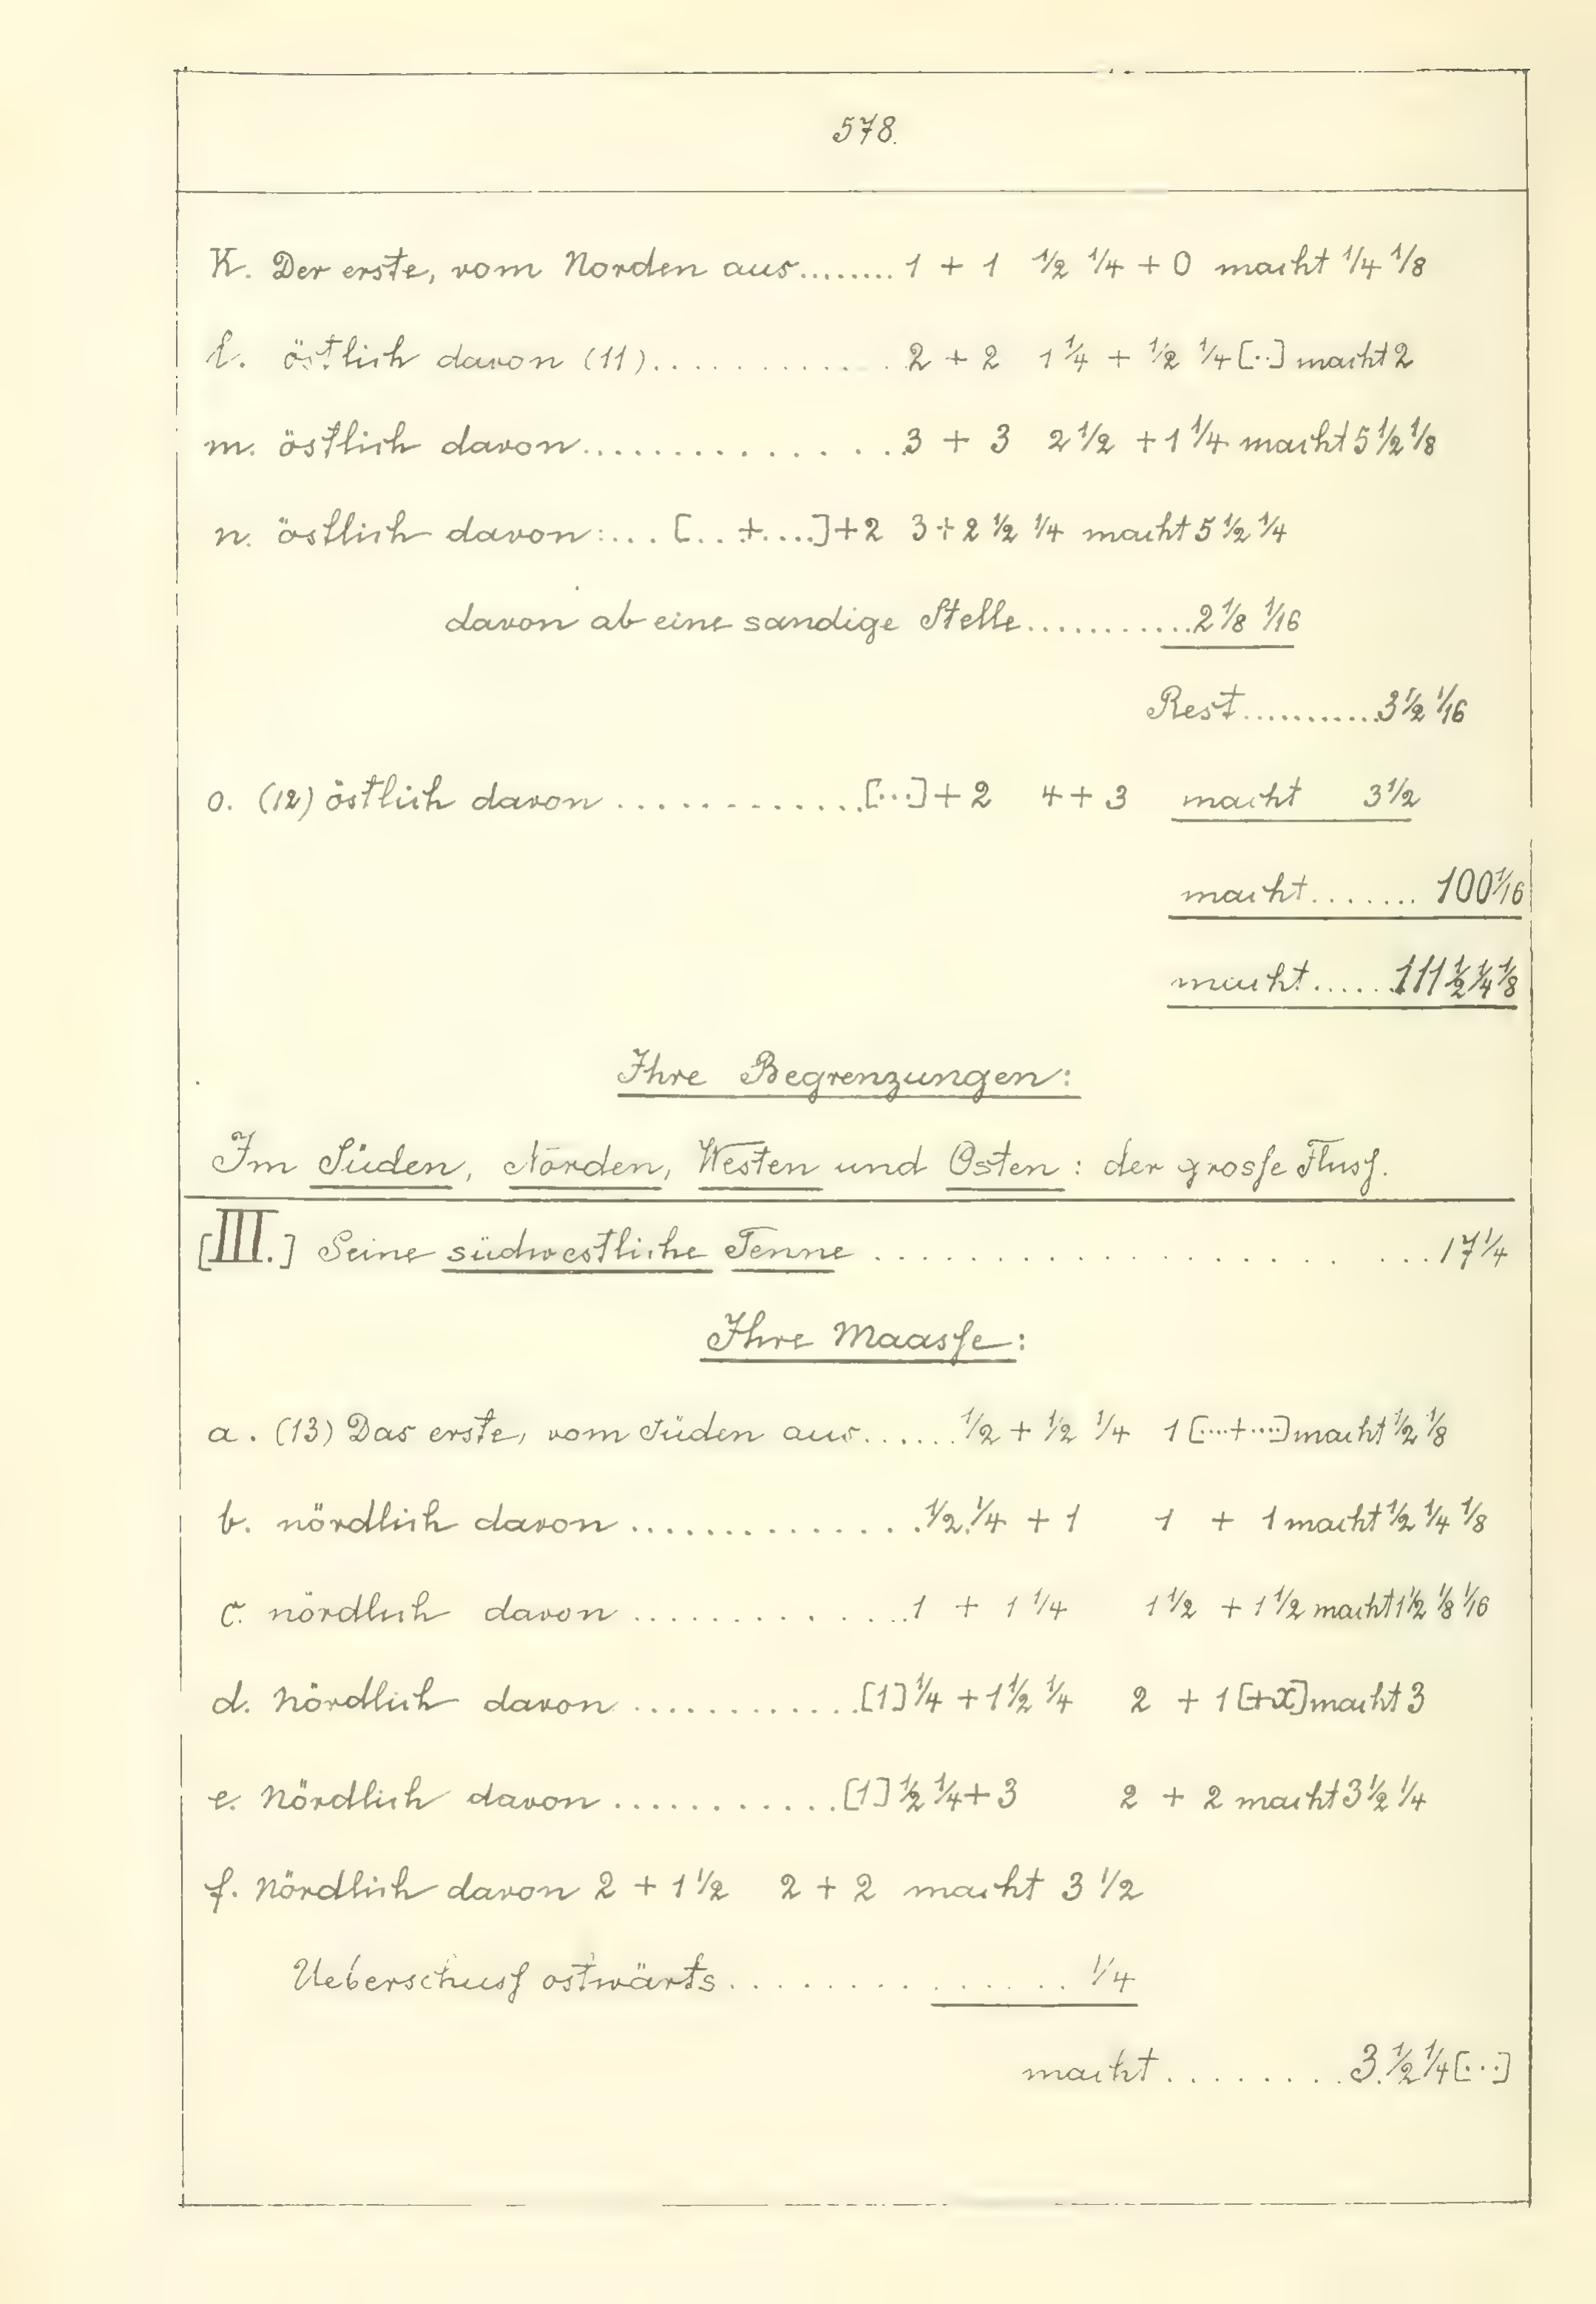 578.
K. Der erste, vom Norden aus........ 1 + 1 1/2 1/4 + 0 macht 1/4 1/8
l. östlich davon (11).............. 2 + 2 1 1/4 + 1/2 1/4 [..] macht 2
m. östlich davon............... 3 + 3 2 1/2 + 1 1/4 macht 5 1/2 1/8
n. östlich davon:... [.. + ....] + 2 3 + 2 1/2 1/4 macht 5 1/2 1/4
davon ab eine sandige Stelle............ 2 1/8 1/16
Rest........... 3 1/2 1/16
o. (12) östlich davon ............. [...] + 2 4 + 3 macht 3 1/2
macht....... 100 1/16
macht...... 111 1/2 1/4 1/8
Ihre Begrenzungen:
Im Süden, Norden, Westen und Osten: der grosse Fluss.
[III.] Seine südwestliche Tenne ................... 17 1/4
Ihre Maasse:
a. (13) Das erste, vom Süden aus...... 1/2 + 1/2 1/4 1 [....+....] macht 1/2 1/8
b. nördlich davon .............. 1/2 1/4 + 1 1 + 1 macht 1/2 1/4 1/8
c. nördlich davon ............. 1 + 1 1/4 1 1/2 + 1 1/2 macht 1 1/2 1/8 1/16
d. Nördlich davon ............ [1] 1/4 + 1 1/2 1/4 2 + 1 [+x] macht 3
e. Nördlich davon ............ [1] 1/2 1/4 + 3 2 + 2 macht 3 1/2 1/4
f. Nördlich davon 2 + 1 1/2 2 + 2 macht 3 1/2
Ueberschuss ostwärts............... 1/4
macht......... 3 1/2 1/4 [...]